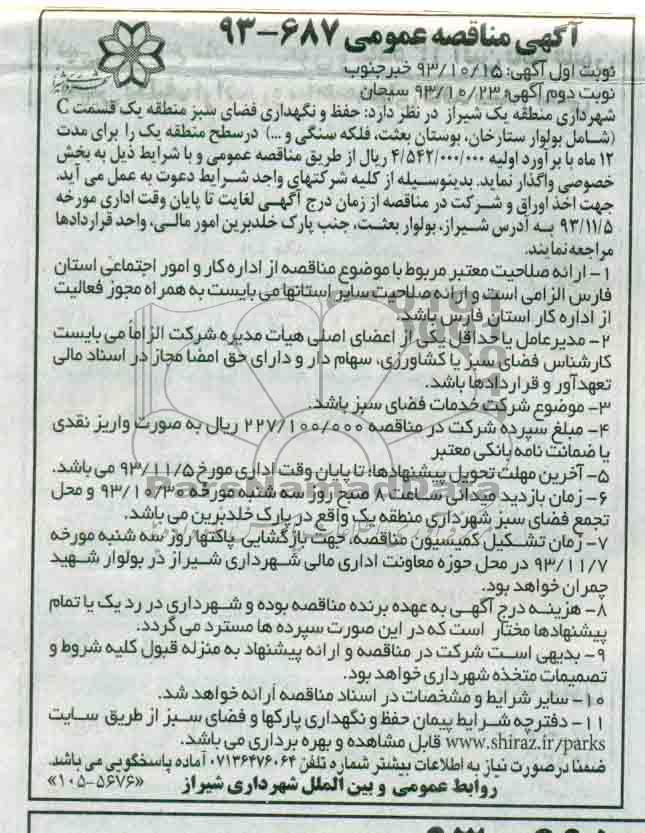 آگهی مناقصه عمومی ۶۸۷-۹۳
نوبت اول آگهی: ۹۳/۱۰/۱۵ خبرجنوب
نوبت دوم آگهی: ۹۳/۱۰/۲۳ سبحان
شهرداری منطقه یک شیراز در نظر دارد: حفظ و نگهداری فضای سبز منطقه یک قسمت C
(شامل بولوار ستارخان، بوستان بعثت، فلکه سنگی و ...) درسطح منطقه یک را برای مدت
۱۲ ماه با برآورد اولیه ۴/۵۴۲/۰۰۰/۰۰۰ ریال از طریق مناقصه عمومی و با شرایط ذیل به بخش
خصوصی واگذار نماید. بدینوسیله از کلیه شرکتهای واجد شرایط دعوت به عمل می آید.
جهت اخذ اوراق و شرکت در مناقصه از زمان درج آگهی لغایت تا پایان وقت اداری مورخه
۹۳/۱۱/۵ به آدرس شیراز، بولوار بعثت، جنب پارک خلدبرین امور مالی، واحد قراردادها
مراجعه نمایند.
۱- ارائه صلاحیت معتبر مربوط با موضوع مناقصه از اداره کار و امور اجتماعی استان
فارس الزامی است و ارائه صلاحیت سایر استانها می بایست به همراه مجوز فعالیت
از اداره کار استان فارس باشد.
۲- مدیرعامل یا حداقل یکی از اعضای اصلی هیأت مدیره شرکت الزاماً می بایست
کارشناس فضای سبز یا کشاورزی، سهام دار و دارای حق امضا مجاز در اسناد مالی
تعهدآور و قراردادها باشد.
۳- موضوع شرکت خدمات فضای سبز باشد.
۴- مبلغ سپرده شرکت در مناقصه ۲۲۷/۱۰۰/۰۰۰ ریال به صورت واریز نقدی
یا ضمانت نامه بانکی معتبر
۵- آخرین مهلت تحویل پیشنهادها: تا پایان وقت اداری مورخ ۹۳/۱۱/۵ می باشد.
۶- زمان بازدید میدانی ساعت ۸ صبح روز سه شنبه مورخه ۹۳/۱۰/۳۰ و محل
تجمع فضای سبز شهرداری منطقه یک واقع در پارک خلدبرین می باشد.
۷- زمان تشکیل کمیسیون مناقصه، جهت بازگشایی پاکتها روز سه شنبه مورخه
۹۳/۱۱/۷ در محل حوزه معاونت اداری مالی شهرداری شیراز در بولوار شهید
چمران خواهد بود.
۸- هزینه درج آگهی به عهده برنده مناقصه بوده و شهرداری در رد یک یا تمام
پیشنهادها مختار است که در این صورت سپرده ها مسترد می گردد.
۹- بدیهی است شرکت در مناقصه و ارائه پیشنهاد به منزله قبول کلیه شروط و
تصمیمات متخذه شهرداری خواهد بود.
۱۰- سایر شرایط و مشخصات در اسناد مناقصه ارائه خواهد شد.
۱۱- دفترچه شرایط پیمان حفظ و نگهداری پارکها و فضای سبز از طریق سایت
www.shiraz.ir/parks قابل مشاهده و بهره برداری می باشد.
ضمنا درصورت نیاز به اطلاعات بیشتر شماره تلفن ۰۷۱۳۶۴۷۶۰۶۴ آماده پاسخگویی می باشد.
روابط عمومی و بین الملل شهرداری شیراز «۵۶۷۶-۱۰۵»
ParsNamadData